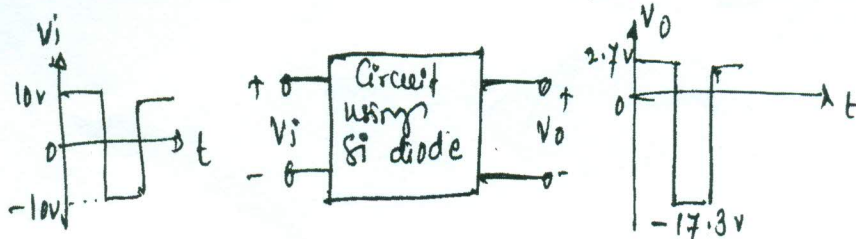 Vi
10v
0
-10v
t
+
Vi
-
Circuit
using
Si diode
+
Vo
-
Vo
2.7v
0
t
-17.3v